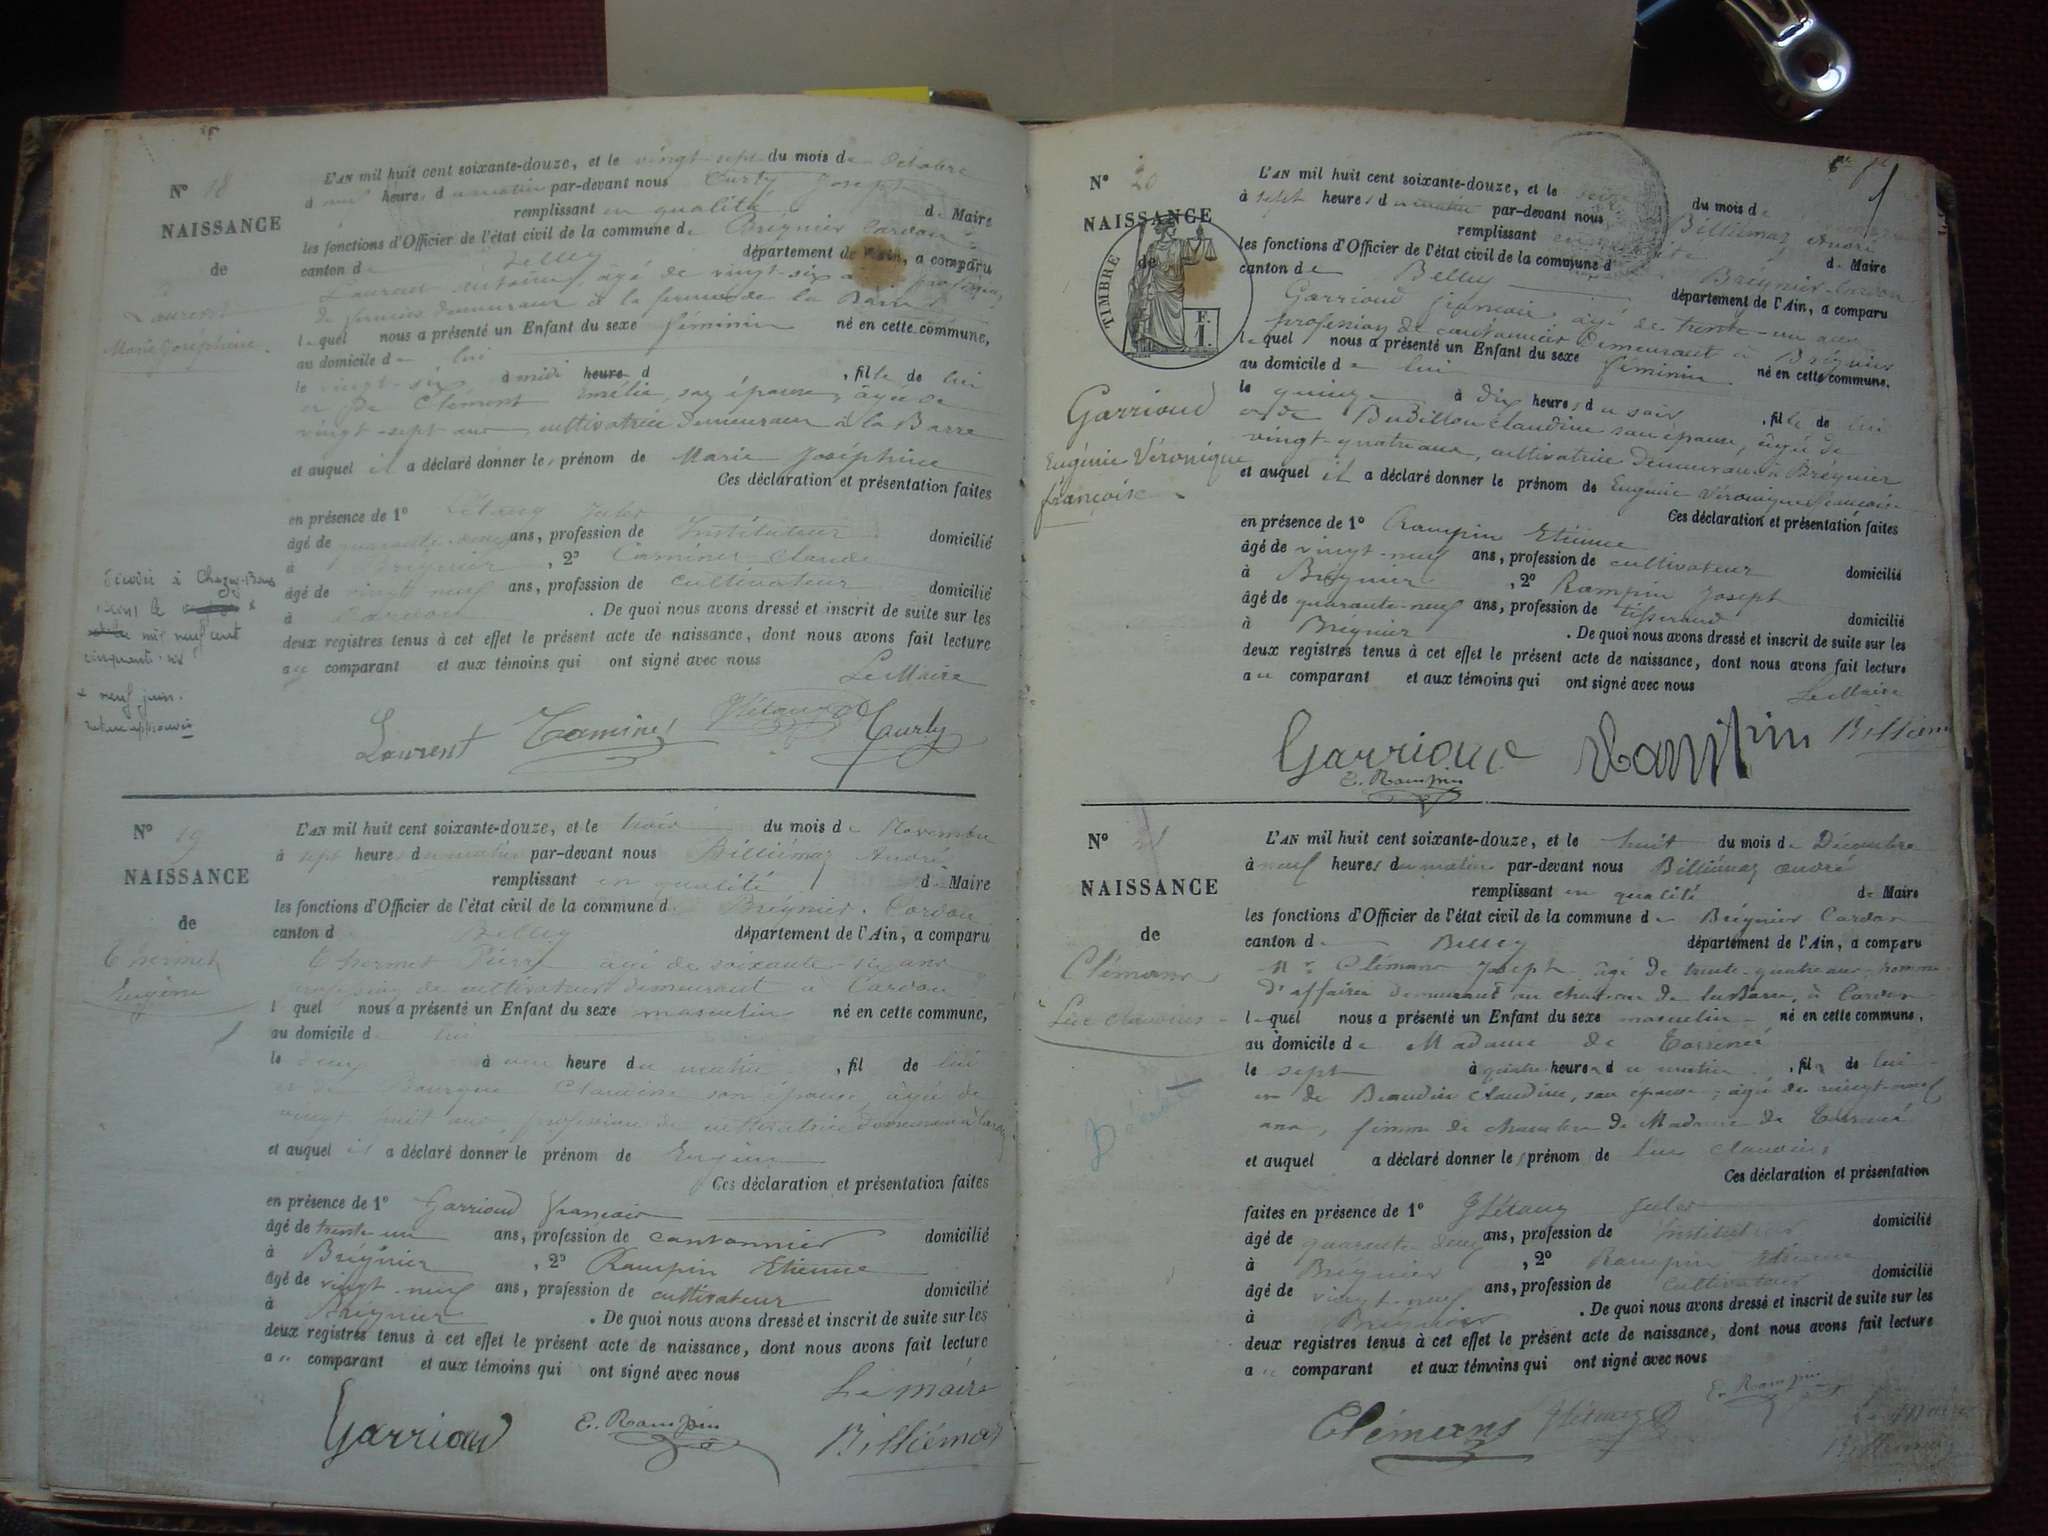 N° 18
NAISSANCE
de
Laurent
Marie Joséphine.
L'AN mil huit cent soixante-douze, et le vingt-sept du mois de Octobre
à neuf heures du matin par-devant nous Curty Joseph
remplissant en qualité de Maire
les fonctions d'Officier de l'état civil de la commune de Brégnier Cordon
canton de Belley département de l'Ain, a comparu
Laurent âgé de vingt-six
de fermier demeurant à la ferme de la Barre
lequel nous a présenté un Enfant du sexe féminin né en cette commune,
au domicile de lui
le vingt-six à midi heure d , fille de lui
et de Clément Emélie, son épouse, âgée de
vingt-sept ans cultivatrice demeurant à la Barre
et auquel il a déclaré donner les prénom de Marie Joséphine
Ces déclaration et présentation faites
en présence de 1° Jules
âgé de quarante-deux ans, profession de Instituteur domicilié
à Brégnier , 2° Claude
âgé de vingt neuf ans, profession de cultivateur domicilié
à Cordon . De quoi nous avons dressé et inscrit de suite sur les
deux registres tenus à cet effet le présent acte de naissance, dont nous avons fait lecture
au comparant et aux témoins qui ont signé avec nous
Le Maire
Laurent Curty
à Chazey-Bons
le
mil neuf cent
cinquante six
neuf juin.
N° 19
NAISSANCE
de
Thermet
Eugène
L'AN mil huit cent soixante-douze, et le trois du mois de Novembre
à sept heures du matin par-devant nous Billiémaz André
remplissant en qualité de Maire
les fonctions d'Officier de l'état civil de la commune de Brégnier-Cordon
canton de Belley département de l'Ain, a comparu
Thermet Pierre âgé de soixante ans
profession de cultivateur demeurant à Cordon
lequel nous a présenté un Enfant du sexe masculin né en cette commune,
au domicile de lui
le deux à une heure du matin , fils de lui
et de Claudine son épouse âgée de
vingt huit ans, profession de cultivatrice demeurant à Cordon
et auquel il a déclaré donner le prénom de Eugène
Ces déclaration et présentation faites
en présence de 1° Garrioud François
âgé de trente un ans, profession de cantonnier domicilié
à Brégnier , 2° Rampin Etienne
âgé de vingt-neuf ans, profession de cultivateur domicilié
à Brégnier . De quoi nous avons dressé et inscrit de suite sur les
deux registres tenus à cet effet le présent acte de naissance, dont nous avons fait lecture
au comparant et aux témoins qui ont signé avec nous
Le maire
Garrioud E. Rampin Billiémaz
N° 20
NAISSANCE
de
TIMBRE
F.
1.
Garrioud
Eugénie Véronique
françoise
L'AN mil huit cent soixante-douze, et le seize du mois de
à sept heures du matin par-devant nous Billiémaz André
remplissant en qualité de Maire
les fonctions d'Officier de l'état civil de la commune de Brégnier-Cordon
canton de Belley département de l'Ain, a comparu
Garrioud françois âgé de trente-un ans
profession de cantonnier demeurant à Brégnier
lequel nous a présenté un Enfant du sexe féminin né en cette commune.
au domicile de lui
le quinze à dix heures du soir , fille de lui
et de Budillon Claudine son épouse, âgée de
vingt-quatre ans, cultivatrice demeurant à Brégnier
et auquel il a déclaré donner le prénom de Eugénie Véronique françoise
Ces déclaration et présentation faites
en présence de 1° Rampin Etienne
âgé de vingt-neuf ans, profession de cultivateur domicilié
à Brégnier , 2° Rampin Joseph
âgé de quarante-neuf ans, profession de tisserand domicilié
à Brégnier . De quoi nous avons dressé et inscrit de suite sur les
deux registres tenus à cet effet le présent acte de naissance, dont nous avons fait lecture
au comparant et aux témoins qui ont signé avec nous
Le Maire
Garrioud Rampin Billiém
E. Rampin
N° 21
NAISSANCE
de
Clémans
Luc claudius
Décédé
L'AN mil huit cent soixante-douze, et le huit du mois de Décembre
à neuf heures du matin par-devant nous Billiémaz André
remplissant en qualité de Maire
les fonctions d'Officier de l'état civil de la commune de Brégnier Cordon
canton de Belley département de l'Ain, a comparu
Mr Clémans Joseph âgé de trente-quatre ans, homme
d'affaires demeurant au chateau de la Barre, à Cordon
lequel nous a présenté un Enfant du sexe masculin né en cette commune.
au domicile de Madame de
le sept à quatre heures du matin , fils de lui
et de Claudine, son épouse, âgée de vingt-neuf
ans, femme de chambre de Madame de
et auquel a déclaré donner les prénom de Luc Claudius
Ces déclaration et présentation
faites en présence de 1° Jules
âgé de quarante-deux ans, profession de Instituteur domicilié
à Brégnier , 2° Rampin Etienne
âgé de vingt-neuf ans, profession de cultivateur domicilié
à Brégnier . De quoi nous avons dressé et inscrit de suite sur les
deux registres tenus à cet effet le présent acte de naissance, dont nous avons fait lecture
au comparant et aux témoins qui ont signé avec nous
E. Rampin
Clémans Le Maire
Billiémaz